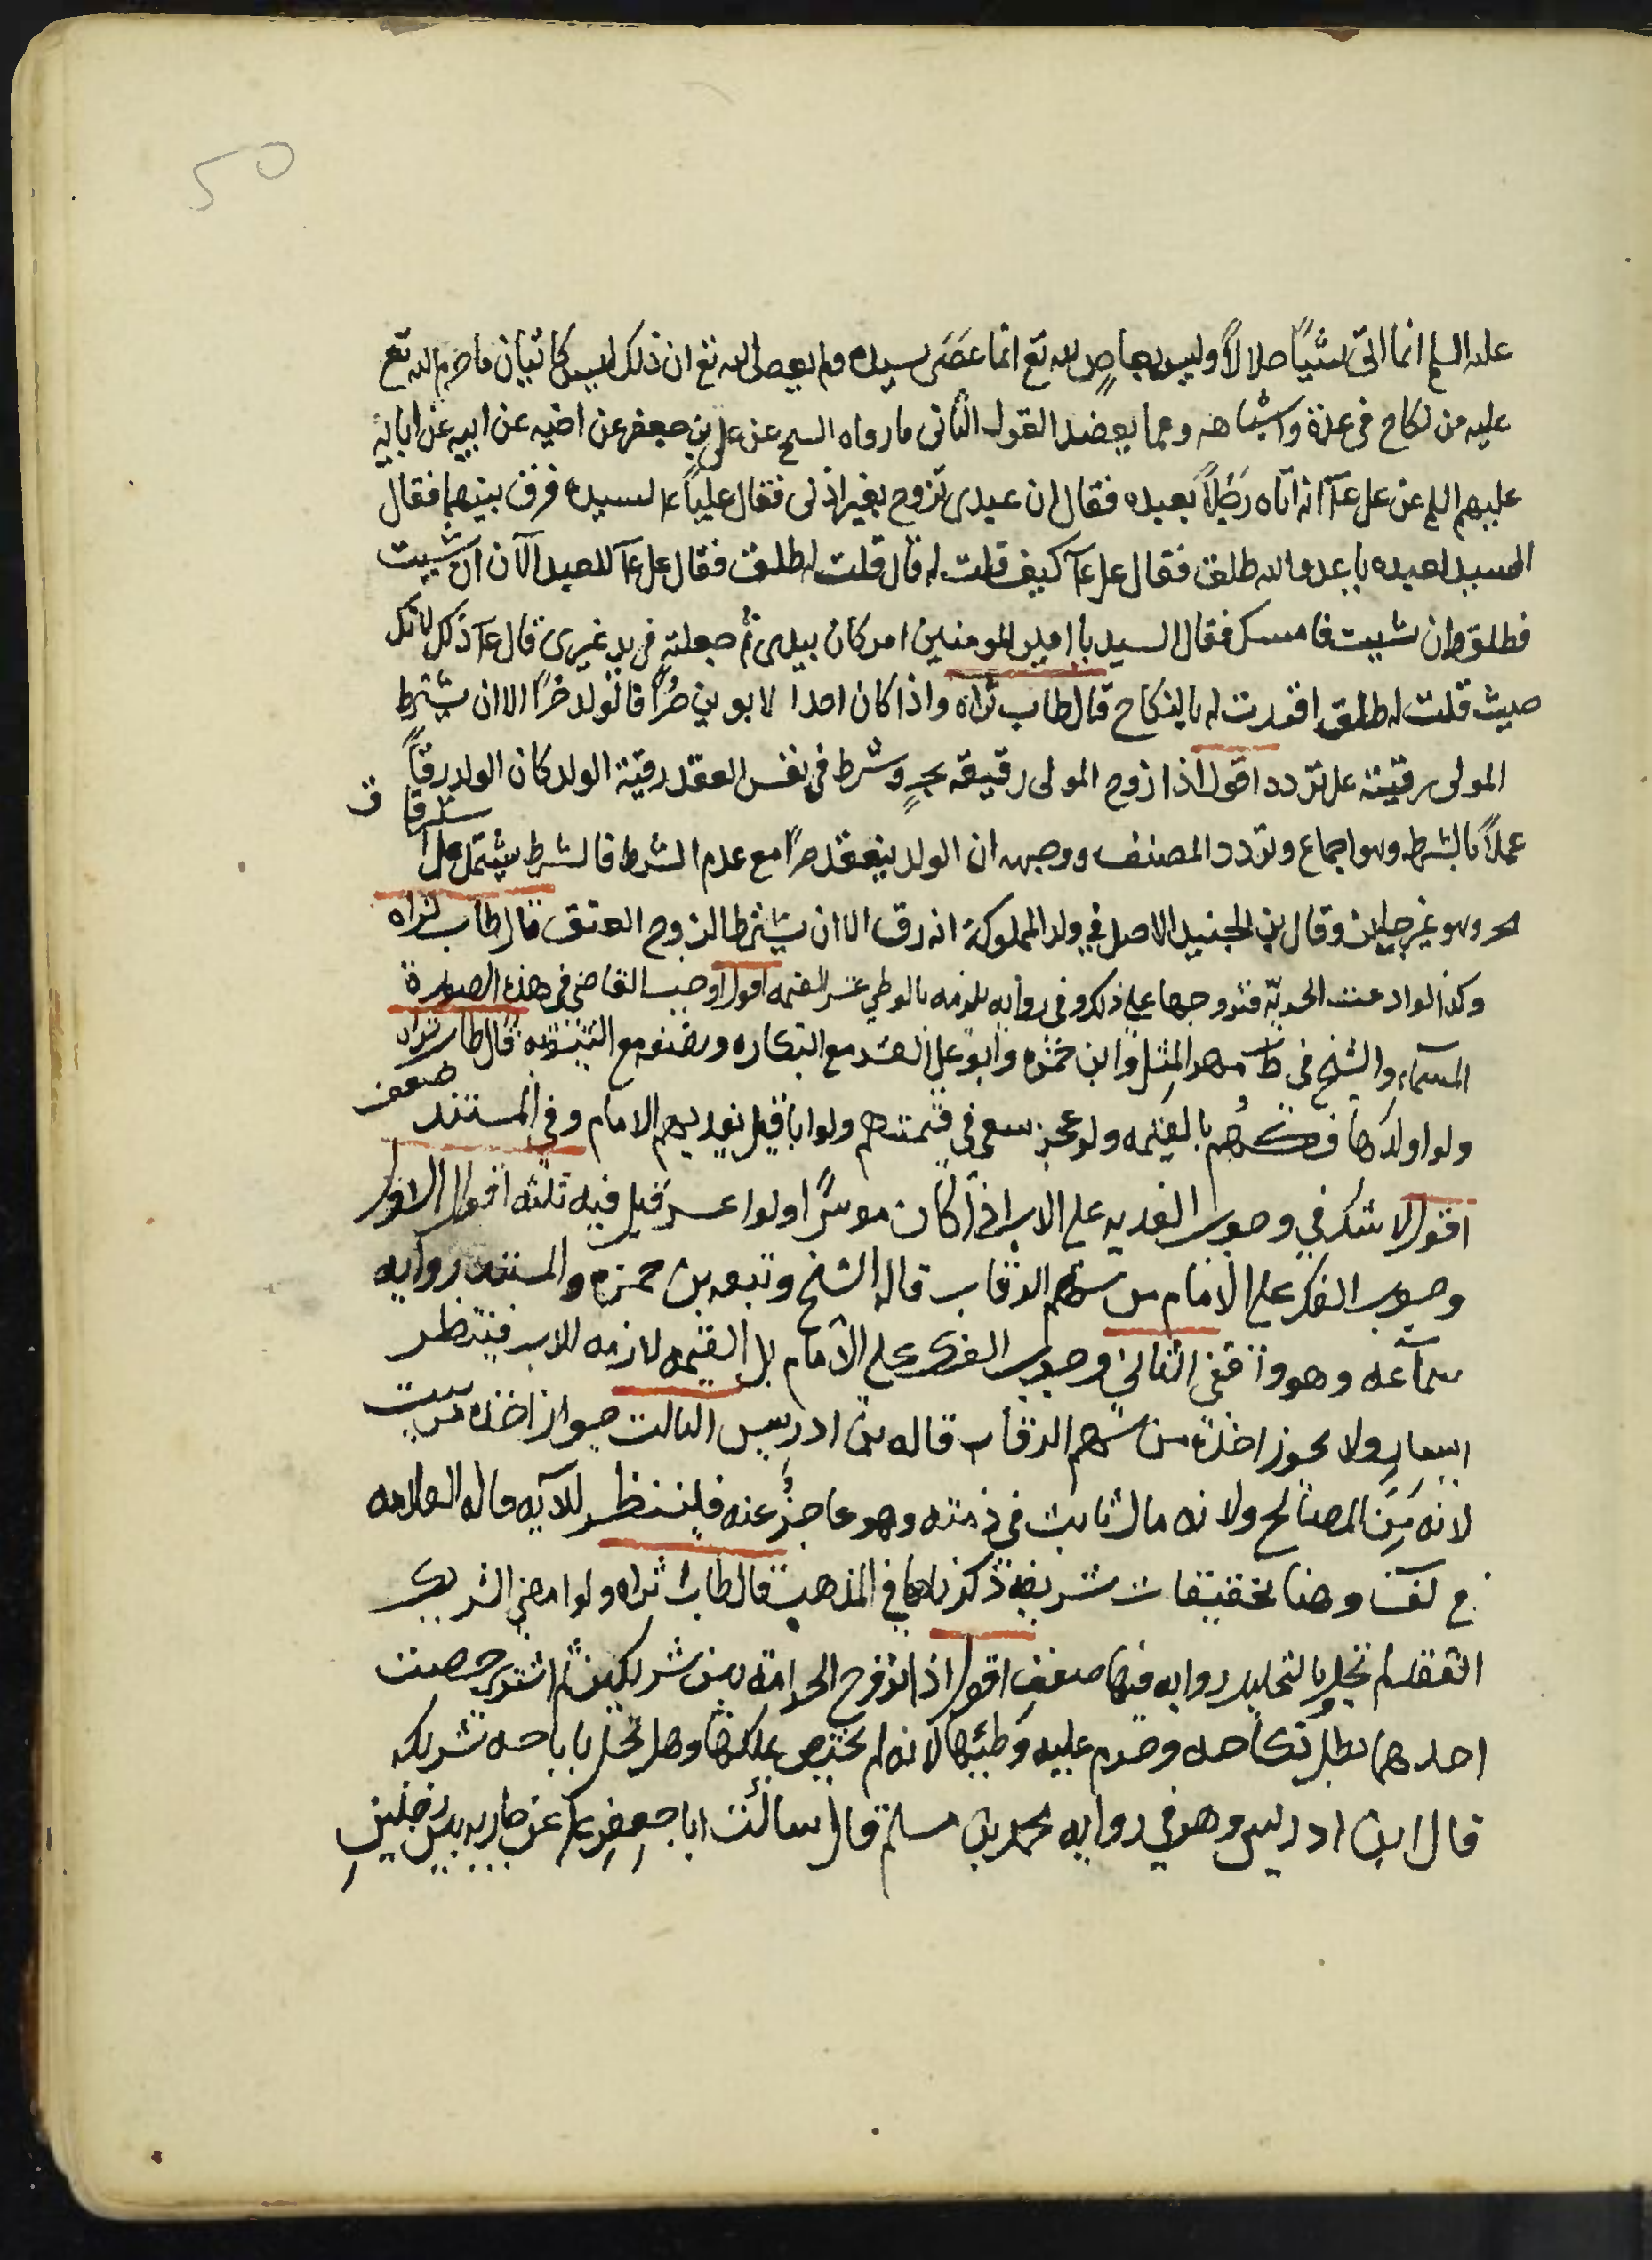 50
عليه السلم انما اتى شيئًا حلالاً وليس بعاصٍ لله تع انما عَصَى سيده ولم يعصى الله تع ان ذلك ليس كاتيان ما حرم الله تع
عليه من نكاح في عدة واشباهه ومما يعضد القول الثانى ما رواه الشيخ عن على بن جعفر عن اخيه عن ابيه عن ابايه
عليهم السلم عن على عآ انه اتاه رَجُلاً بعبده فقال ان عبدى تزوج بغير اذنى فقال علياً ع لسيده فرق بينهما فقال
السيد لعبده يا عدو الله طلق فقال على عآ كيف قلت له قال قلت له طلق فقال على عآ للعبد الآن ان شيت
فطلق وان شيت فامسك فقال السيد يا امير المومنين امر كان بيدى ثم جعلته فى يد غيرى قال عآ ذلك لانك
حيث قلت له طلق اقررت له بالنكاح قال طاب ثراه واذا كان احدا لابوين حُرًا فالولد حُرًا الا ان يشترط
المولى رقيته على تردد اقول اذا زوج المولى رقيقه بحرٍ وشرط فى نفس العقد رقية الولد كان الولد رقاً
ستزقاق
عملاً بالشرط وهو اجماع وتردد المصنف ووجهه ان الولد ينعقد حرًا مع عدم الشرط فالشرط يشتمل على ا
حر وهو غير جايز وقال بن الجنيد الاصل في ولد المملوكة انه رق الا ان يشترط الزوج العتق قال طاب ثراه
وكذا لو ادعت الحرية فتزوجها على ذلك وفى روايه يلزمه بالوطي عشر القيمه اقول اوجب القاضى في هذه الصورة
المسماء والشيخ فى ط مهر المثل وابن حمزه وابو على العشر مع البكاره ونصفه مع الثيبوبه قال طاب ثراه
ولو اولدها فكهُم بالقيمه ولو عجز سعى في قيمتهم ولو ابا قيل يفديهم الامام وفي المستند ضعف
اقول لا شك في وجوب الفديه على الاب اذا كان موسرًا ولو اعسر قيل فيه ثلثه اقوال الاول
وجوب الفك على الامام من سهم الرقاب قاله الشيخ وتبعه بن حمزه والمستند روايه
سماعه وهو واقفى الثاني وجوب الفك على الامام بل القيمه لازمه للاب فينتظر
يساره ولا يجوز اخذه من سهم الرقاب قاله بن ادريس الثالث جواز اخذه من بيت
لانه مِنَ المصالح ولانه مال ثابت في ذمته وهو عاجزُ عنه فلينتظر للآيه قاله العلامه
في لف وهنا تحقيقات شريفة ذكرناها في المذهب قال طاب ثراه ولو امضى الشريك
العقد لم تحل وبالتحليل روايه فيها ضعف اقول اذا تزوج الحر امة بين شريكين ثم اشترى حصت
احدهما بطل نكاحه وحرم عليه وطئها لانه لم يختص بملكها وهل تحل باباحه شريكه
قال ابن ادريس وهو في روايه محمد بن مسلم قال سالت ابا جعفر ع عن جاريه بين رجلين